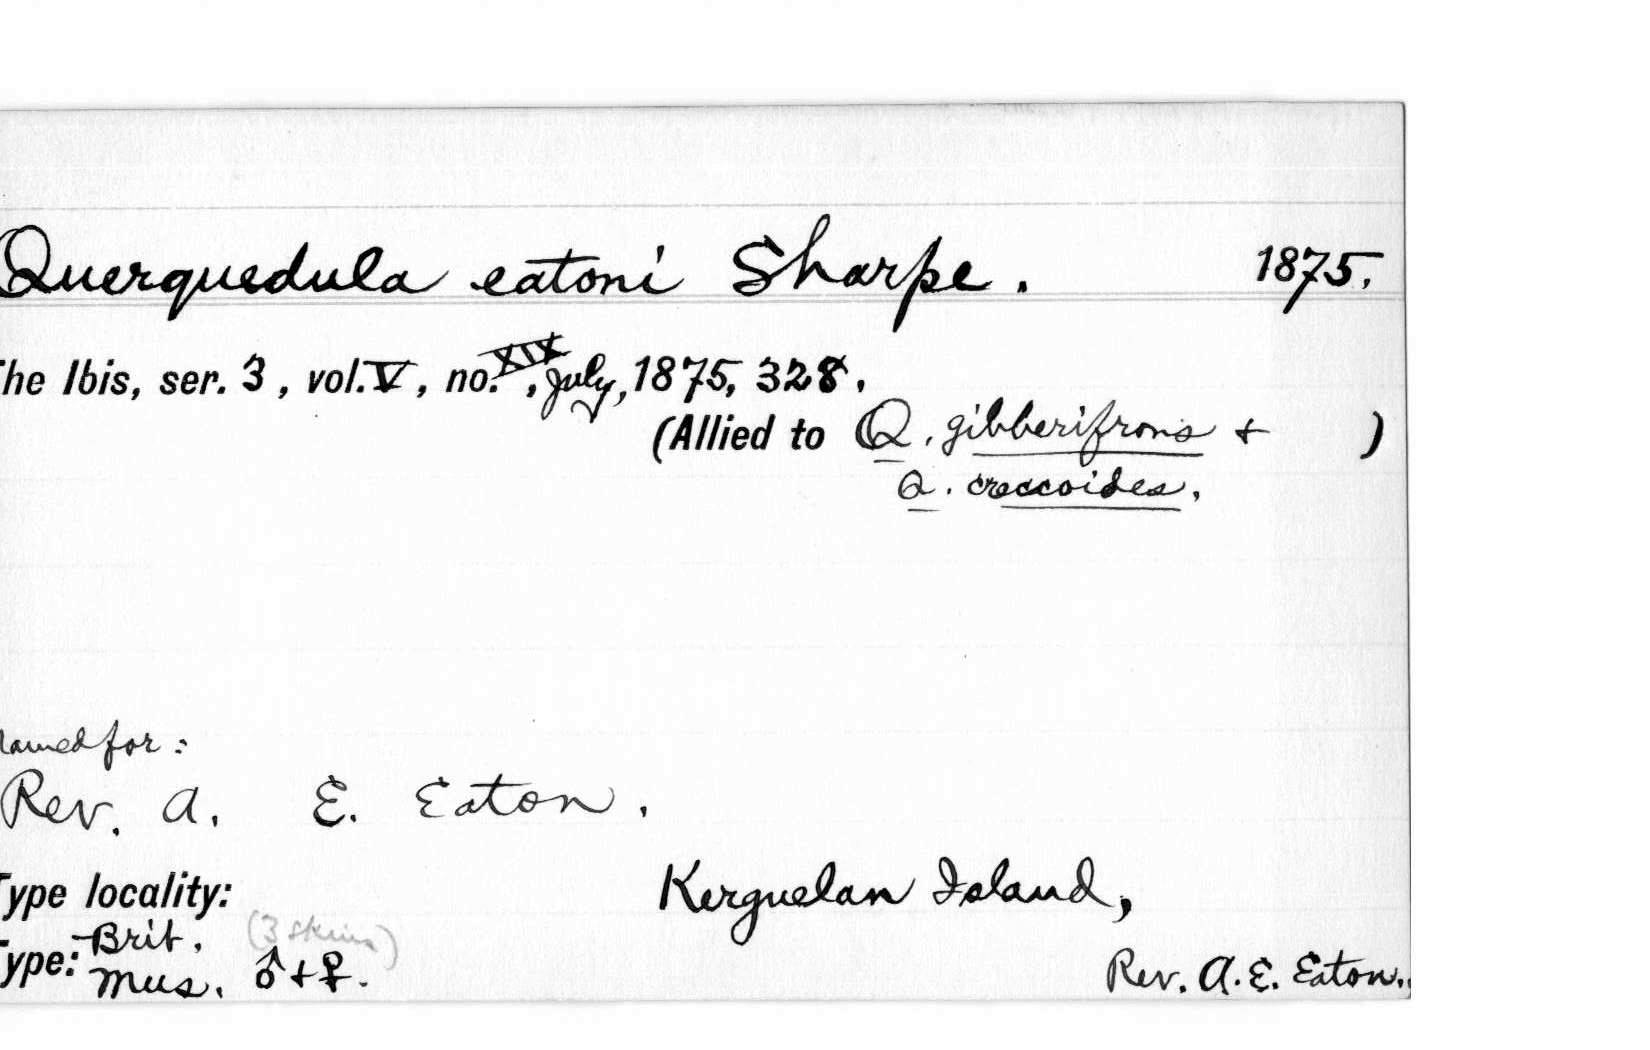 Querquedula eatoni Sharpe. 1875.
The Ibis, ser. 3, vol. V, no. XIX, July, 1875, 328.
(Allied to Q. gibberifrons + )
Q. creccoides.
Named for:
Rev. A. E. Eaton.
Type locality: Kerguelan Island,
Type: Brit. Mus. (3 skins) ♂+♀. Rev. A. E. Eaton.